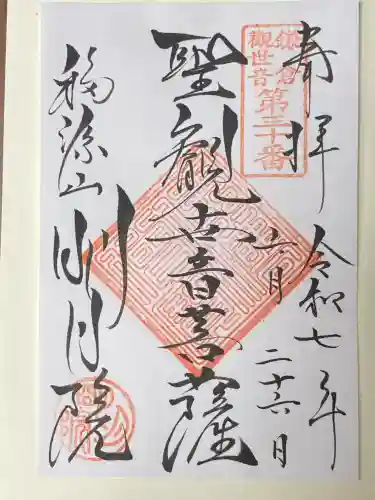 奉拝
鎌倉
観世音
第三十番
令和七年
六月
二十六日
聖観世音菩薩
福源山
明月院